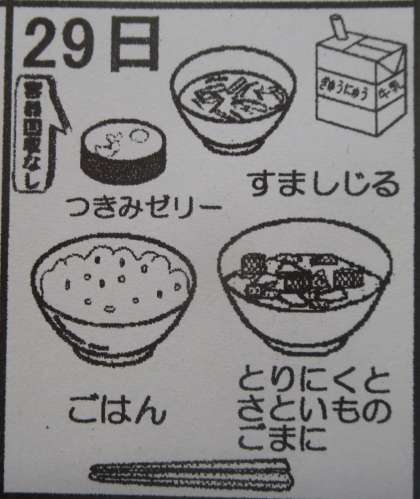 29日
容器回収なし
ぎゅうにゅう
牛乳
つきみゼリー
すましじる
ごはん
とりにくと
さといもの
ごまに